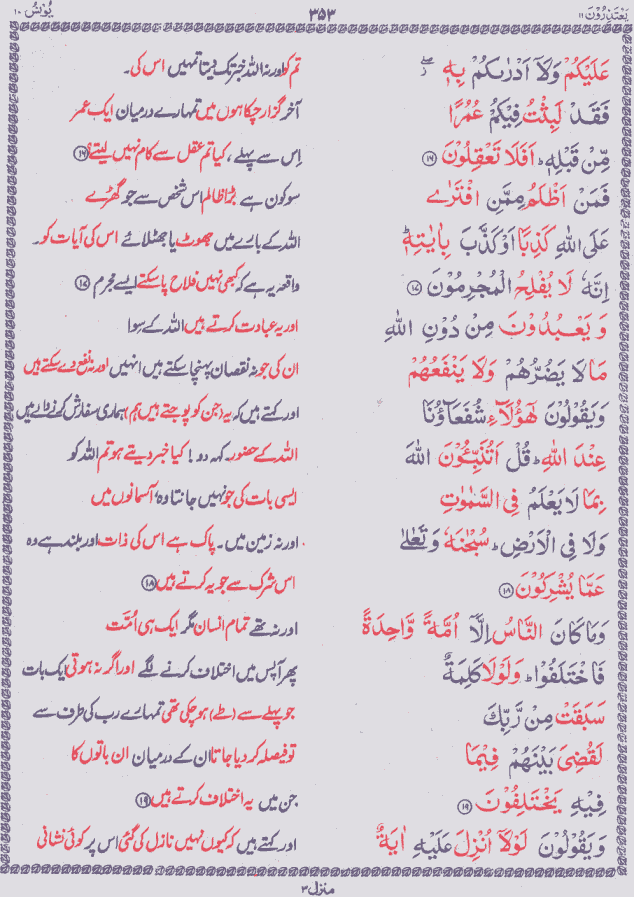 يَعْتَذِرُوْنَ ۱۱ ۳۵۳ يُوْنُسَ ۱۰
عَلَيْكُمْ وَلَاۤ اَدْرٰىكُمْ بِهٖ ۖ٘ تم کو اور نہ اللہ خبر تک دیتا تمہیں اس کی۔
فَقَدْ لَبِثْتُ فِيْكُمْ عُمُرًا آخر گزار چکا ہوں میں تمہارے درمیان ایک عمر
مِّنْ قَبْلِهٖ ؕ اَفَلَا تَعْقِلُوْنَ ﴿۱۶﴾ اِس سے پہلے، کیا تم عقل سے کام نہیں لیتے؟ ﴿۱۶﴾
فَمَنْ اَظْلَمُ مِمَّنِ افْتَرٰى سو کون ہے بڑا ظالم اس شخص سے جو گھڑے
عَلَى اللّٰهِ كَذِبًا اَوْ كَذَّبَ بِاٰيٰتِهٖ ؕ اللہ کے بارے میں جھوٹ یا جھٹلائے اس کی آیات کو۔
اِنَّهٗ لَا يُفْلِحُ الْمُجْرِمُوْنَ ﴿۱۷﴾ واقعہ یہ ہے کہ کبھی نہیں فلاح پا سکتے ایسے مجرم ﴿۱۷﴾
وَيَعْبُدُوْنَ مِنْ دُوْنِ اللّٰهِ اور یہ عبادت کرتے ہیں اللہ کے سوا
مَا لَا يَضُرُّهُمْ وَلَا يَنْفَعُهُمْ ان کی جو نہ نقصان پہنچا سکتے ہیں انہیں اور نہ نفع دے سکتے ہیں
وَيَقُوْلُوْنَ هٰۤؤُلَآءِ شُفَعَآؤُنَا اور کہتے ہیں کہ یہ (جن کو پوجتے ہیں ہم) ہماری سفارش کرنے والے ہیں
عِنْدَ اللّٰهِ ؕ قُلْ اَتُنَبِّـُٔوْنَ اللّٰهَ اللہ کے حضور۔ کہہ دو! کیا خبر دیتے ہو تم اللہ کو
بِمَا لَا يَعْلَمُ فِى السَّمٰوٰتِ ایسی بات کی جو نہیں جانتا وہ، آسمانوں میں
وَلَا فِى الْاَرْضِ ؕ سُبْحٰنَهٗ وَتَعٰلٰى اور نہ زمین میں۔ پاک ہے اس کی ذات اور بلند ہے وہ
عَمَّا يُشْرِكُوْنَ ﴿۱۸﴾ اس شرک سے جو یہ کرتے ہیں ﴿۱۸﴾
وَمَا كَانَ النَّاسُ اِلَّاۤ اُمَّةً وَّاحِدَةً اور نہ تھے تمام انسان مگر ایک ہی اُمّت
فَاخْتَلَفُوْا ؕ وَلَوْلَا كَلِمَةٌ پھر آپس میں اختلاف کرنے لگے اور اگر نہ ہوتی ایک بات
سَبَقَتْ مِنْ رَّبِّكَ جو پہلے سے (طے) ہو چکی تھی تمہارے رب کی طرف سے
لَقُضِىَ بَيْنَهُمْ فِيْمَا تو فیصلہ کر دیا جاتا ان کے درمیان ان باتوں کا
فِيْهِ يَخْتَلِفُوْنَ ﴿۱۹﴾ جن میں یہ اختلاف کرتے ہیں ﴿۱۹﴾
وَيَقُوْلُوْنَ لَوْلَاۤ اُنْزِلَ عَلَيْهِ اٰيَةٌ اور کہتے ہیں کہ کیوں نہیں نازل کی گئی اس پر کوئی نشانی
منزل ۳